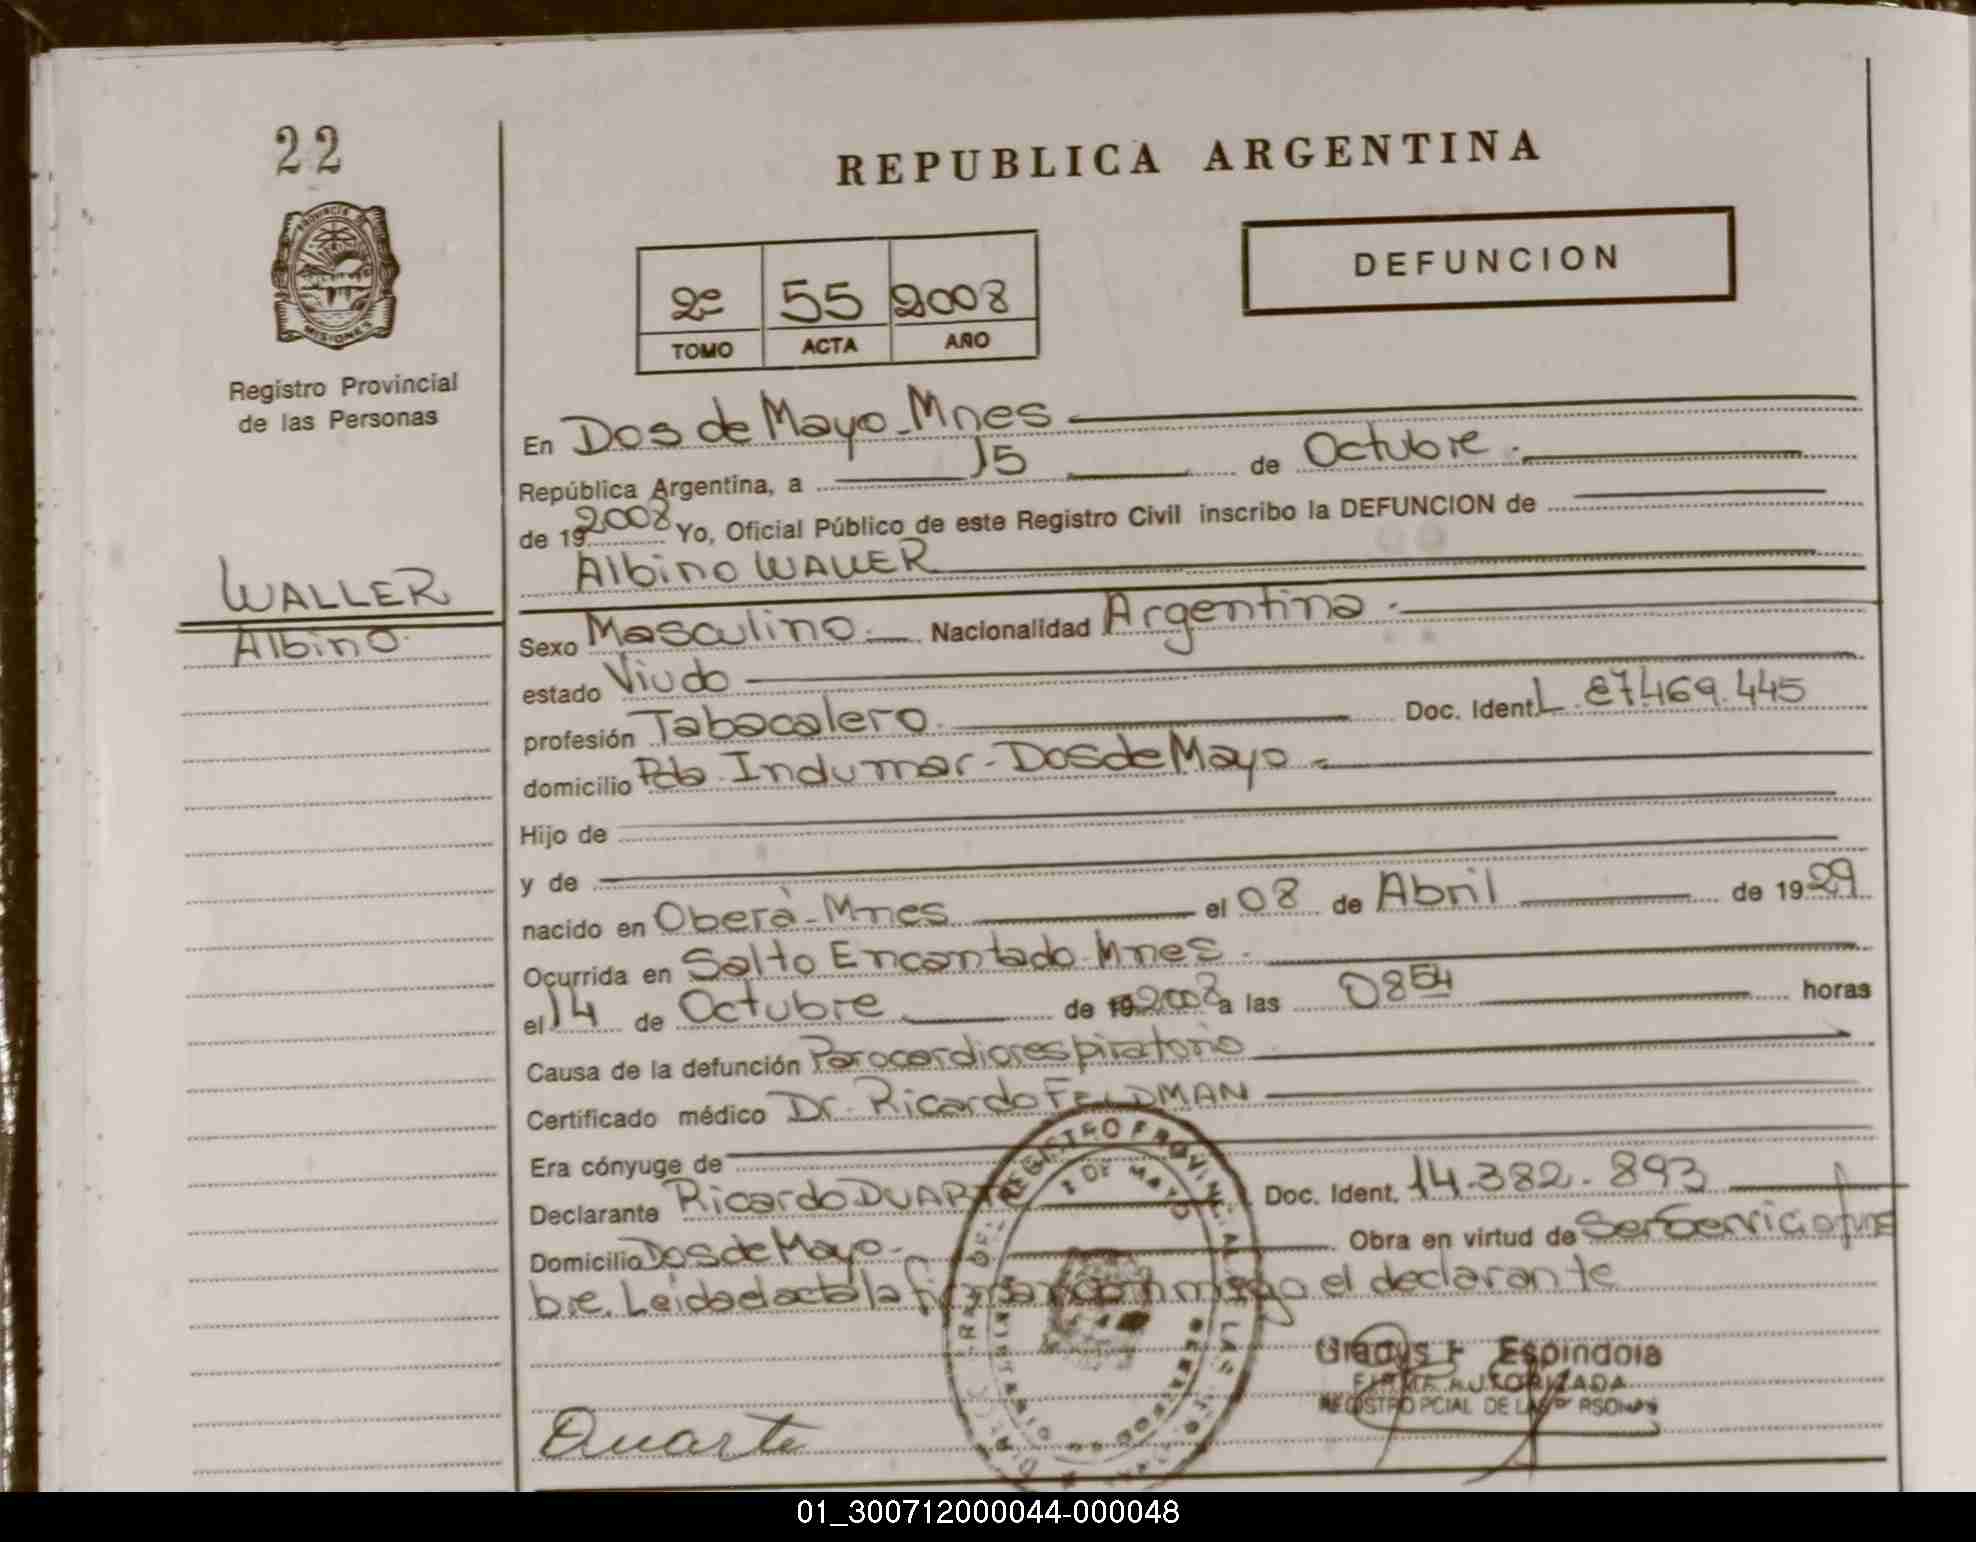 22
REPUBLICA ARGENTINA
PROVINCIA DE
MISIONES
DEFUNCION
2º 55 2008
TOMO ACTA AÑO
Registro Provincial
de las Personas
En Dos de Mayo - Mnes
República Argentina, a 15 de Octubre.
de 19 2008 Yo, Oficial Público de este Registro Civil inscribo la DEFUNCION de
Albino WALLER
WALLER
Albino.
Sexo Masculino. Nacionalidad Argentina.
estado Viudo
profesión Tabacalero. Doc. Ident. L. 87.469.445
domicilio Pda. Indumar - Dos de Mayo
Hijo de
y de
nacido en Oberá - Mnes el 08 de Abril de 1929
Ocurrida en Salto Encantado - Mnes.
el 14 de Octubre de 19 2008 a las 08 54 horas
Causa de la defunción Parocardiorespiratorio
Certificado médico Dr. Ricardo FELDMAN
Era cónyuge de
Declarante Ricardo DUARTE Doc. Ident. 14.382.893
Domicilio Dos de Mayo. Obra en virtud de Ser Servicio fune
bre. Leida el acta la firman conmigo el declarante
2 DE MAYO
Gladys Espindola
FIRMA AUTORIZADA
REGISTRO PCIAL DE LAS PERSONAS
Duarte
01_300712000044-000048